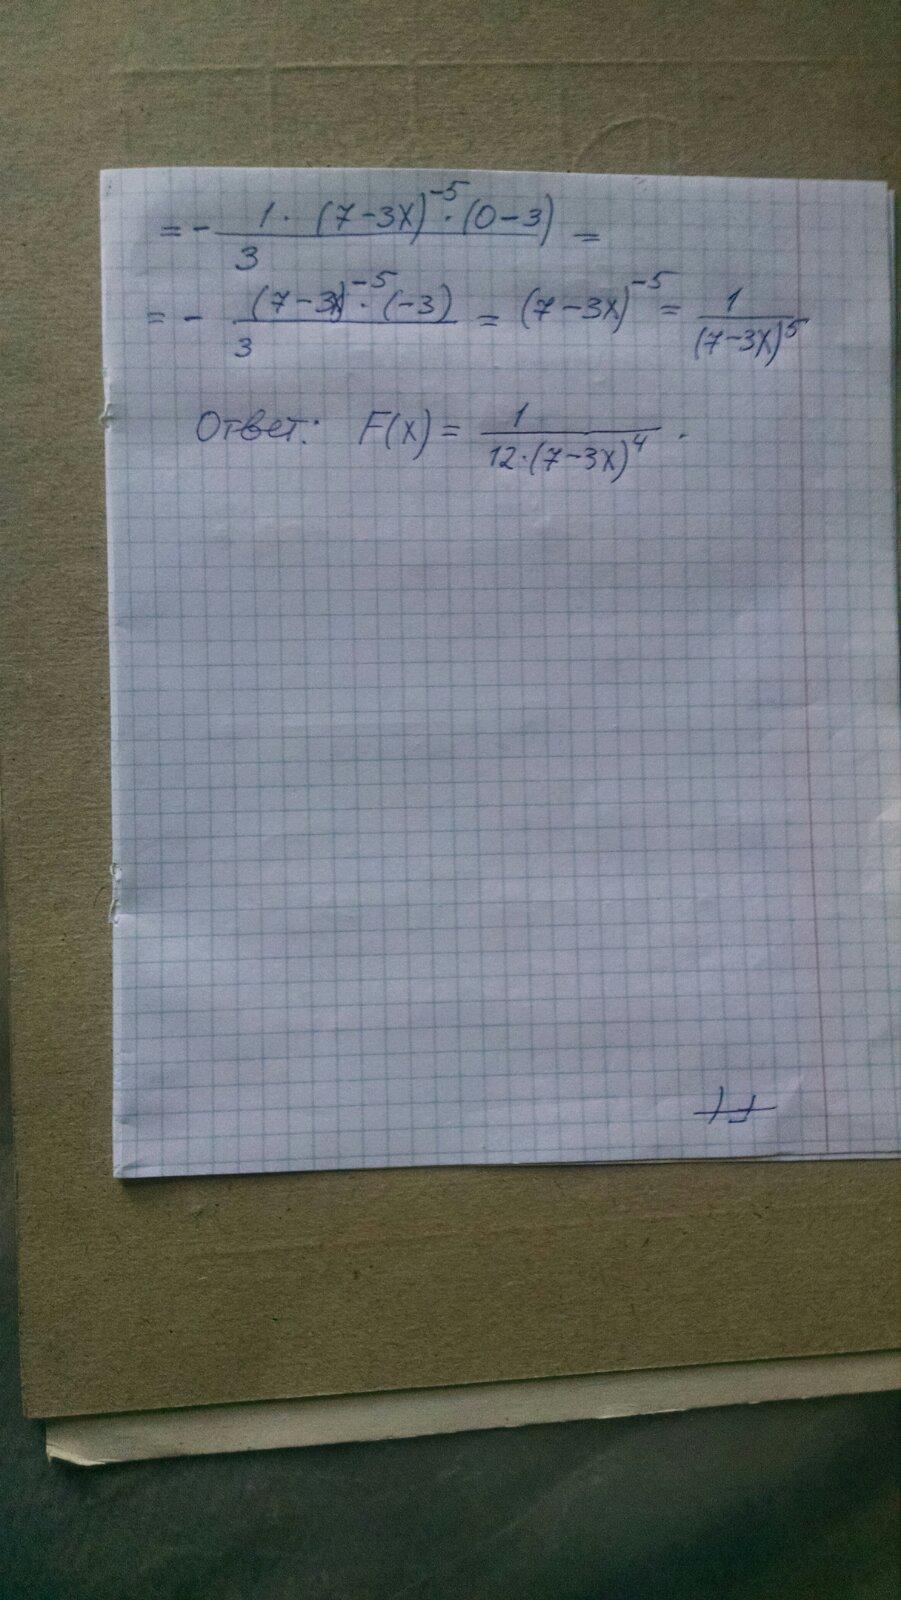 = - (1 · (7-3x)^-5 · (0-3))/3 =
= - ((7-3x)^-5 · (-3))/3 = (7-3x)^-5 = 1/(7-3x)^5
Ответ: F(x) = 1/(12·(7-3x)^4) .